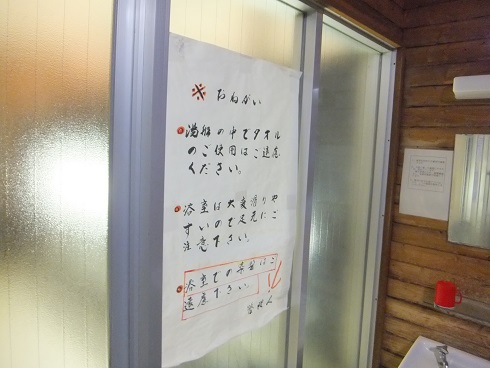 ※ おねがい
湯船の中でタオル
のご使用はご遠慮
ください。
浴室は大変滑りや
すいので足元にご
注意下さい。
浴室での
はご
遠慮下さい。
管理人